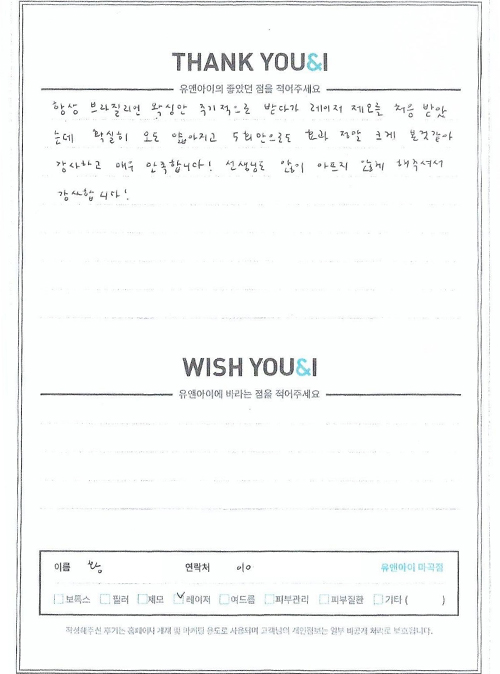 THANK YOU&I
유앤아이의 좋았던 점을 적어주세요
항상 브라질리언 왁싱만 주기적으로 받다가 레이저 제모를 처음 받았
는데 확실히 모도 얇아지고 5회만으로도 효과 정말 크게 본것같아
감사하고 매우 만족합니다! 선생님도 많이 아프지 않게 해주셔서
감사합니다!
WISH YOU&I
유앤아이에 바라는 점을 적어주세요
이름 연락처 010 유앤아이 마곡점
보톡스 필러 제모 레이저 여드름 피부관리 피부질환 기타 ( )
작성해주신 후기는 홈페이지 게재 및 마케팅 용도로 사용되며 고객님의 개인정보는 일부 비공개 처리로 보호됩니다.